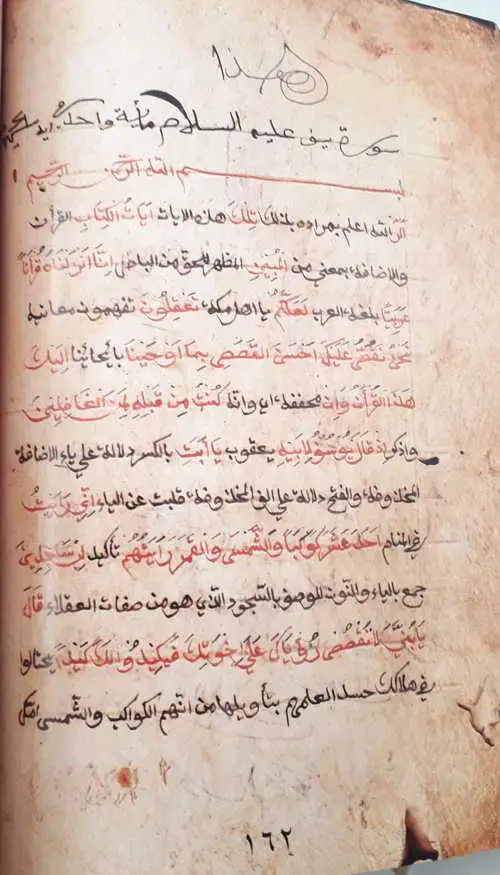 هذا
سورة يوسف عليه السلام مأية واحد
بسم الله الرحمن الرحيم
الر الله اعلم بمراده بذلك تلك هذه الايات ايات الكتاب القرآن
والاضافة بمعني من المبين المظهر للحق من الباطل انا انزلناه قرآنا
عربيا بلغة العرب لعلكم يا اهل مكة تعقلون تفهمون معانيه
نحن نقص عليك احسن القصص بما اوحينا بايحائنا اليك
هذا القرآن وان مخففة اي وانه كنت من قبله لمن الغافلين
واذكر اذ قال يوسف لابيه يعقوب يا ابت بالكسر دلالة علي ياء الاضافة
المحذوفة والفتح دلالة علي الف المحذوفة قلبت عن الياء اني رايت
في المنام احد عشر كوكبا والشمس والقمر رايتهم تأكيد لي ساجدين
جمع بالياء والنون للوصف بالسجود الذي هو من صفات العقلاء قال
يا بني لا تقصص رؤياك علي اخوتك فيكيدوا لك كيدا يحتالوا
في هلاكك حسدا لعلمهم بتأويلها من انهم الكواكب والشمس امك
١٦٢